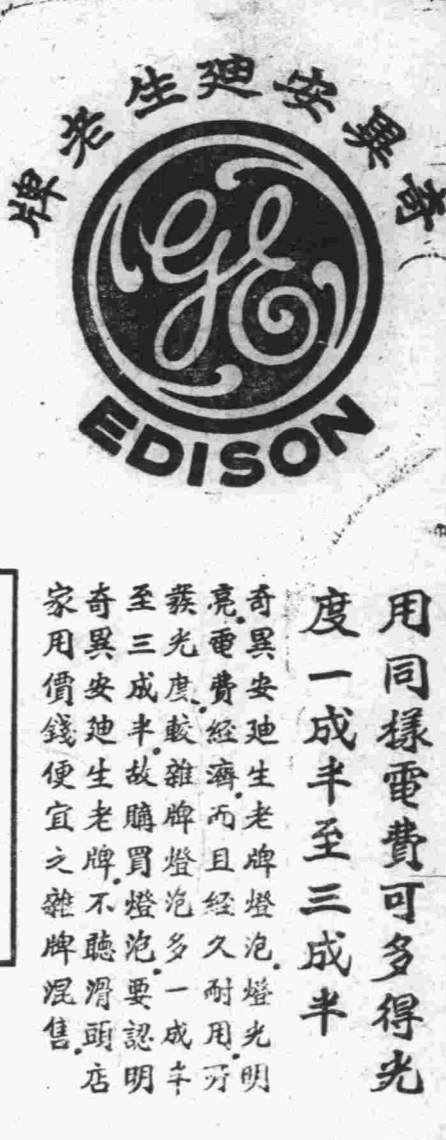 奇異安廸生老牌
GE
EDISON
用同樣電費可多得光
度一成半至三成半
奇異安廸生老牌燈泡.燈光明
亮.電費經濟.而且經久耐用.所
發光度.較雜牌燈泡多一成半
至三成半.故購買燈泡.要認明
奇異安廸生老牌.不聽滑頭店
家用價錢便宜之雜牌混售.